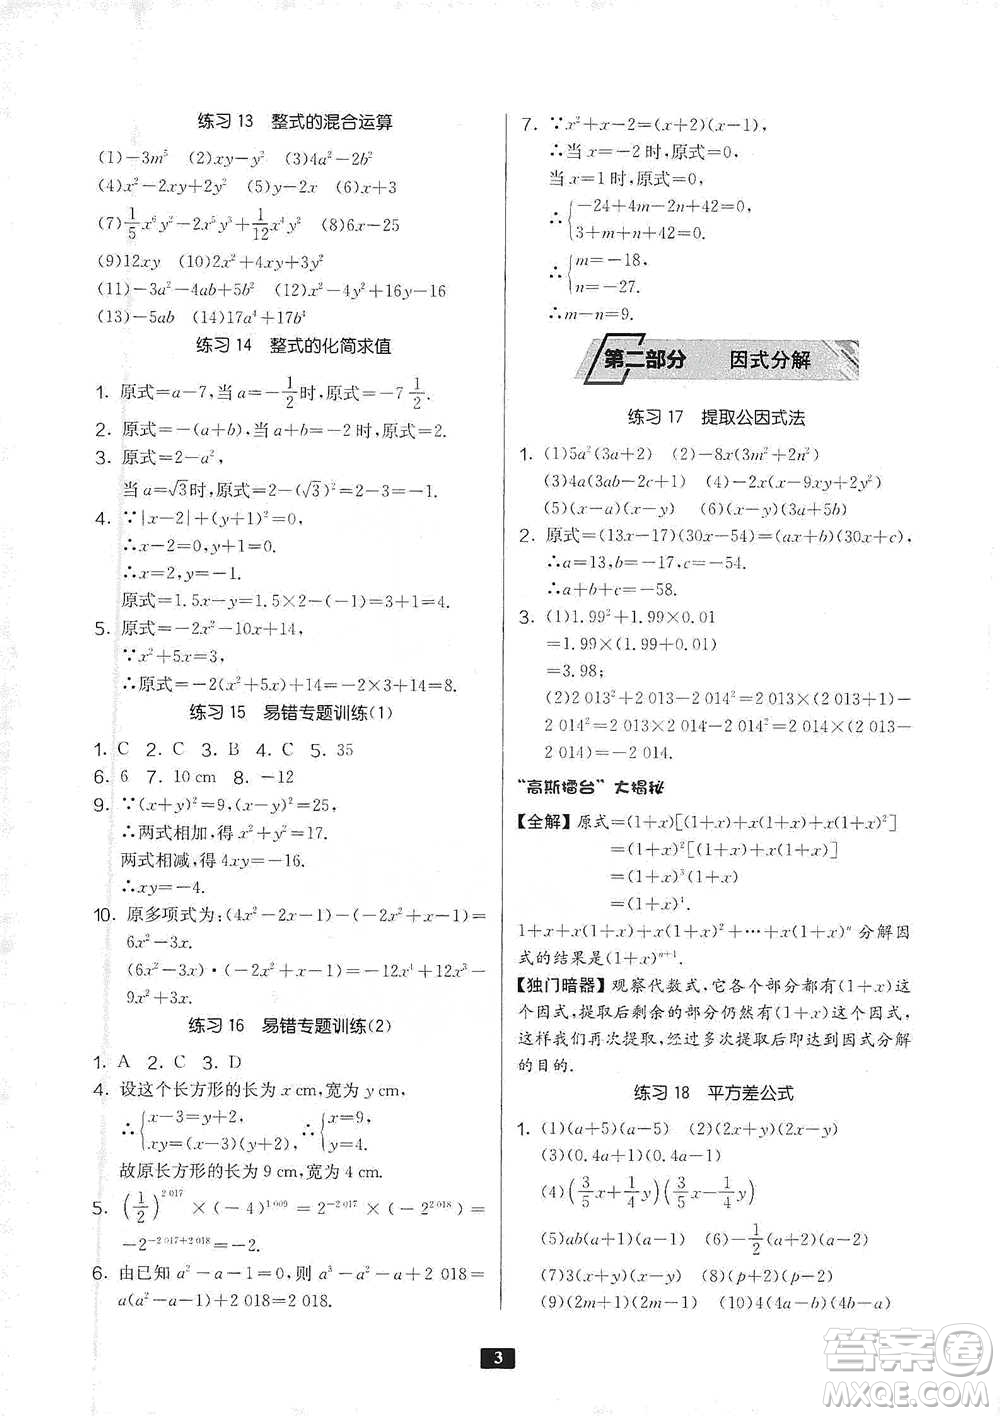 练习 13 整式的混合运算
(1)-3m⁵ (2)xy-y² (3)4a²-2b²
(4)x²-2xy+2y² (5)y-2x (6)x+3
(7)1/5x⁶y²-2x⁵y³+1/12x⁴y² (8)6x-25
(9)12xy (10)2x²+4xy+13y²
(11)-3a²-4ab+5b² (12)x²-4y²+16y-16
(13)-5ab (14)17a⁴+17b⁴
练习 14 整式的化简求值
1. 原式=a-7,当 a=-1/2时,原式=-7 1/2.
2. 原式=-(a+b),当 a+b=-2时,原式=2.
3. 原式=2-a²,
当 a=√3时,原式=2-(√3)²=-1.
4. ∵|x-2|+(y+1)²=0,
∴x-2=0,y+1=0.
∴x=2,y=-1.
原式=1.5x-y=1.5×2-(-1)=4.
5. 原式=-2x²-10x+14,
∵x²+5x=3,
∴原式=-2(x²+5x)+14=-2×3+14=8.
练习 15 易错专题训练(1)
1. C 2. C 3. B 4. C 5. 35
6. 6 7. 10 cm 8. -12
9. ∵(x+y)²=9,(x-y)²=25,
∴两式相加,得 x²+y²=17.
两式相减,得 4xy=-16.
∴xy=-4.
10. 原多项式为:(4x²-2x-1)-(-2x²+x-1)=
6x²-3x.
(6x²-3x)·(-2x²+x-1)=-12x⁴+12x³-
9x²+3x.
练习 16 易错专题训练(2)
1. A 2. C 3. D
4. 设这个长方形的长为 x cm,宽为 y cm,
∴{x-3=y+2, xy=(x-3)(y+2). ∴{x=9, y=4.
故原长方形的长为 9 cm,宽为 4 cm.
5. (1/2)^2 017×(-4)^1 009=2^-2 017×(-2^2 018)=
-2^-2 017+2 018=-2.
6. 由已知 a²-a-1=0,则 a³-a²-a+2 018=
a(a²-a-1)+2 018=2 018.
7. ∵x²+x-2=(x+2)(x-1),
∴当 x=-2时,原式=0,
当 x=1时,原式=0.
∴{-24+4m-2n+42=0, 3+m+n+42=0.
∴{m=-18, n=-27.
∴m-n=9.
第二部分 因式分解
练习 17 提取公因式法
1. (1)5a²(3a+2) (2)-8x(3m²+2n²)
(3)4a(3ab-2c+1) (4)-2x(x-9xy+2y²)
(5)(x-a)(x-y) (6)(x-y)(3a+5b)
2. 原式=(13x-17)(30x-54)=(ax+b)(30x+c),
∴a=13,b=-17,c=-54.
∴a+b+c=-58.
3. (1)1.99²+1.99×0.01
=1.99×(1.99+0.01)
=3.98;
(2)2 013²+2 013-2 014²=2 013×(2 013+1)-
2 014²=2 013×2 014-2 014²=2 014×(2 013-
2 014)=-2 014.
“高斯擂台”大揭秘
【全解】原式=(1+x)[(1+x)+x(1+x)+x(1+x)²]
=(1+x)²[(1+x)+x(1+x)]
=(1+x)³(1+x)
=(1+x)⁴.
1+x+x(1+x)+x(1+x)²+…+x(1+x)ⁿ 分解因
式的结果是(1+x)ⁿ⁺¹.
【独门暗器】观察代数式,它各个部分都有(1+x)这
个因式,提取后剩余的部分仍然有(1+x)这个因式,
这样我们再次提取,经过多次提取后即达到因式分解
的目的.
练习 18 平方差公式
1. (1)(a+5)(a-5) (2)(2x+y)(2x-y)
(3)(0.4a+1)(0.4a-1)
(4)(3/5x+1/4y)(3/5x-1/4y)
(5)ab(a+1)(a-1) (6)-1/2(a+2)(a-2)
(7)3(x+y)(x-y) (8)(p+2)(p-2)
(9)(2m+1)(2m-1) (10)4(4a-b)(4b-a)
3
答案圈
MXQE.COM